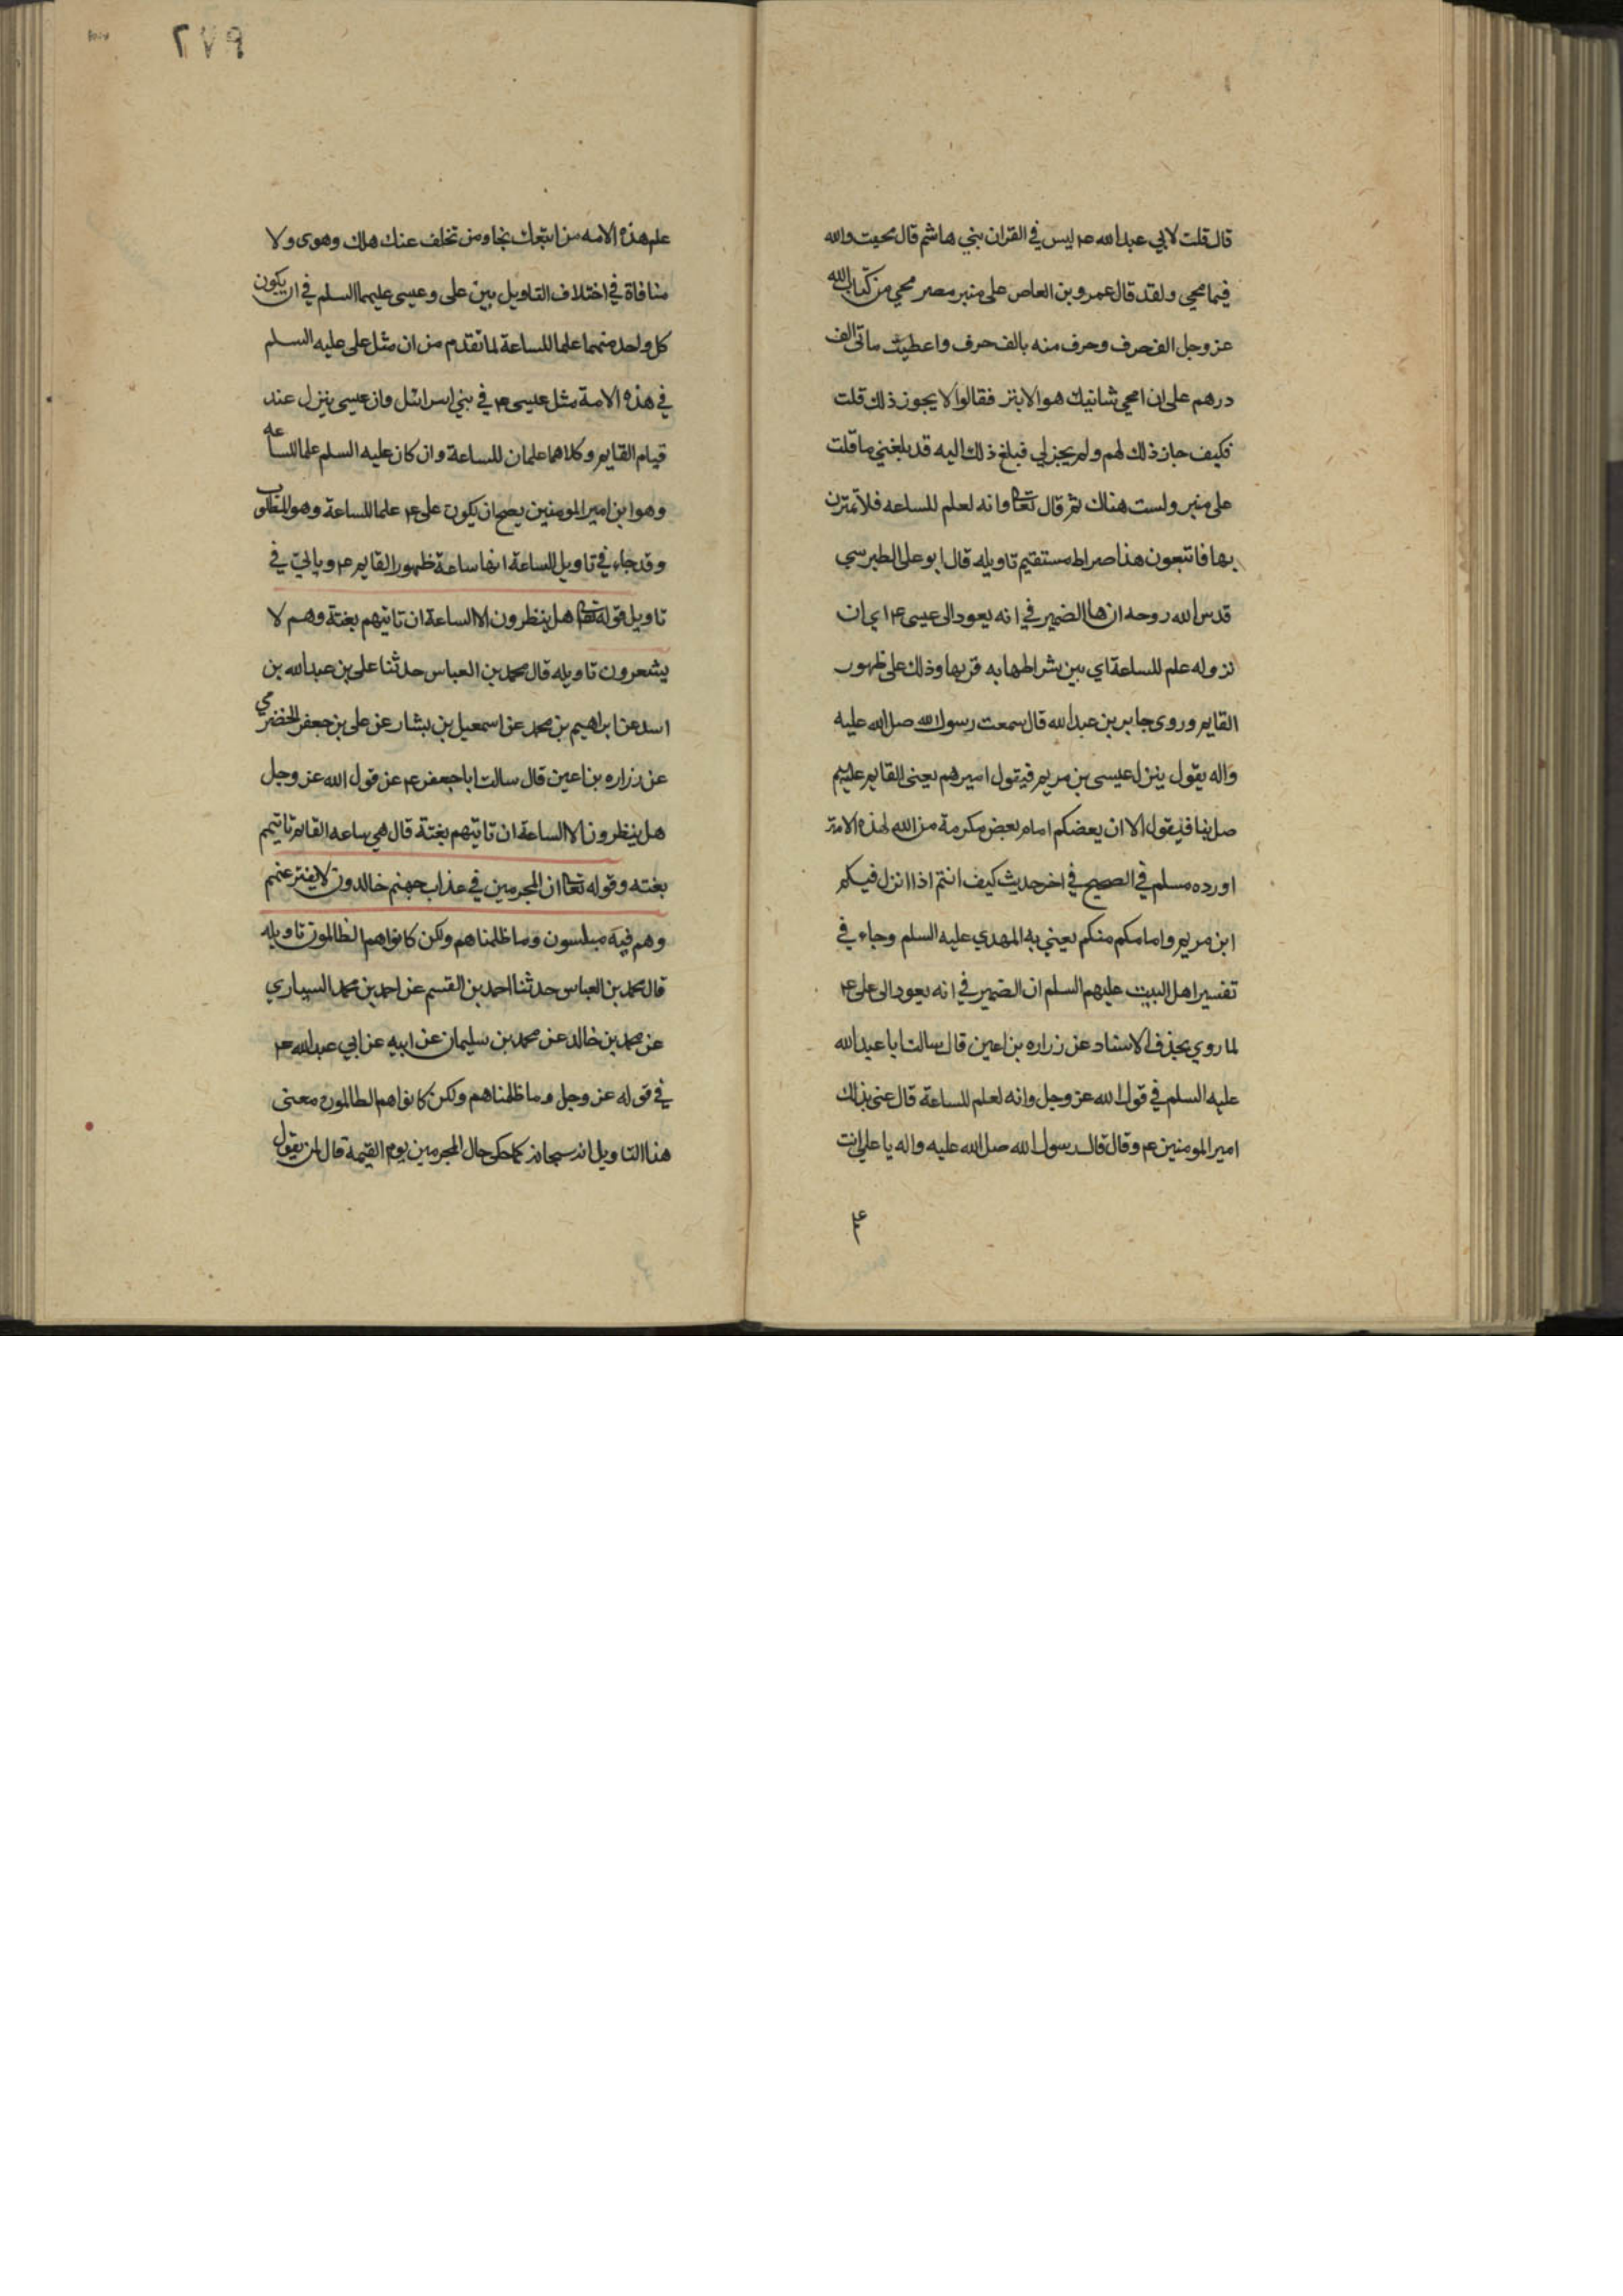 قال قلت لابي عبدالله ع‍ ليس في القران بني هاشم قال محيت والله
فيما محي ولقد قال عمرو بن العاص على منبر مصر محي من كتاب الله
عز وجل الف حرف وحرف منه بالف حرف واعطيت ماتى الف
درهم على ان امحي شانيك هو الابتر فقالوا لا يجوز ذلك قلت
فكيف جاز ذلك لهم ولم يجز لي فبلغ ذلك اليه قد بلغني ما قلت
على منبر ولست هناك ثم قال تعا وانه لعلم للساعه فلا تمترن
بها فاتبعون هذا صراط مستقيم تاويله قال ابو على الطبرسي
قدس الله روحه ان ها الضمير في انه يعود الى عيسى ع‍ اي ان
نزوله علم للساعة اي بين شراطها به قربها وذلك على ظهور
القايم وروى جابر بن عبدالله قال سمعت رسول الله صل الله عليه
واله يقول ينزل عيسى بن مريم فيقول اميرهم يعنى القايم عليهم
صل بنا فيقول الا ان بعضكم امام بعض مكرمة من الله لهذه الامة
اورده مسلم في الصحيح في اخر حديث كيف انتم اذا انزل فيكم
ابن مريم وامامكم منكم يعني به المهدي عليه السلم وجاء في
تفسير اهل البيت عليهم السلم ان الضمير في انه يعود الى على ع‍
لما روي بحذف الاسناد عن زراره بن اعين قال سالت ابا عبدالله
عليه السلم في قول الله عز وجل وانه لعلم للساعة قال عنى بذلك
امير المومنين ع‍ وقال قال رسول الله صل الله عليه واله يا علي انت
٢٧٩
علم هذه الامه من اتبعك نجا ومن تخلف عنك هلك وهوى ولا
منافاة في اختلاف التاويل بين على وعيسى عليهما السلم في ان يكون
كل واحد منهما علما للساعة لما تقدم من ان مثل على عليه السلم
في هذه الامة مثل عيسى ع‍ في بني اسرائل وان عيسى ينزل عند
قيام القايم وكلاهما علمان للساعة وان كان عليه السلم علما للساعه
وهو ابن امير المومنين يصح ان يكون على ع‍ علما للساعة وهو المطلوب
وقد جاء في تاويل الساعة انها ساعة ظهور القايم ع‍ وياتي في
تاويل قوله تعا هل ينظرون الا الساعة ان تاتيهم بغتة وهم لا
يشعرون تاويله قال محمد بن العباس حدثنا على بن عبدالله بن
اسد عن ابراهيم بن محمد عن اسمعيل بن بشار عن على بن جعفر الحضرمي
عن زراره بن اعين قال سالت ابا جعفر ع‍ عن قول الله عز وجل
هل ينظرون الا الساعة ان تاتيهم بغتة قال هي ساعه القايم تاتيهم
بغته وقوله تعا ان المجرمين في عذاب جهنم خالدون لا يفتر عنهم
وهم فيه مبلسون وما ظلمناهم ولكن كانوا هم الظالمون تاويله
قال محمد بن العباس حدثنا احمد بن القسم عن احمد بن محمد السياري
عن محمد بن خالد عن محمد بن سليمان عن ابيه عن ابي عبدالله ع‍
في قوله عز وجل وما ظلمناهم ولكن كانوا هم الظالمون معنى
هذا التاويل انه سبحانه كما حكى حال المجرمين يوم القيمة قال لمن يقول